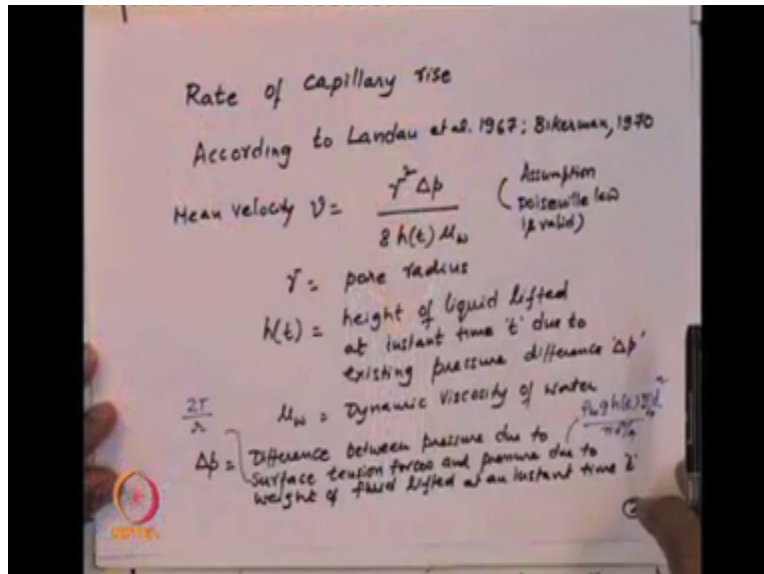 Rate of capillary rise
According to Landau et al. 1967; Bikerman, 1970
Mean velocity v = r² Δp / 8 h(t) μw (Assumption poiseuille law is valid)
r = pore radius
h(t) = height of liquid lifted
at instant time 't' due to
existing pressure difference 'Δp'
μw = Dynamic viscosity of water
2T / r
Δp = Difference between pressure due to
surface tension forces and pressure due to
weight of fluid lifted at an instant time 't'
NPTEL